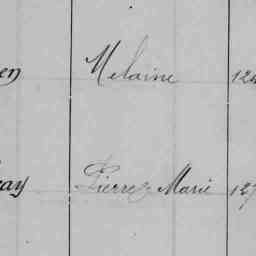 en Melaine 124
ay Pierre Marie 127